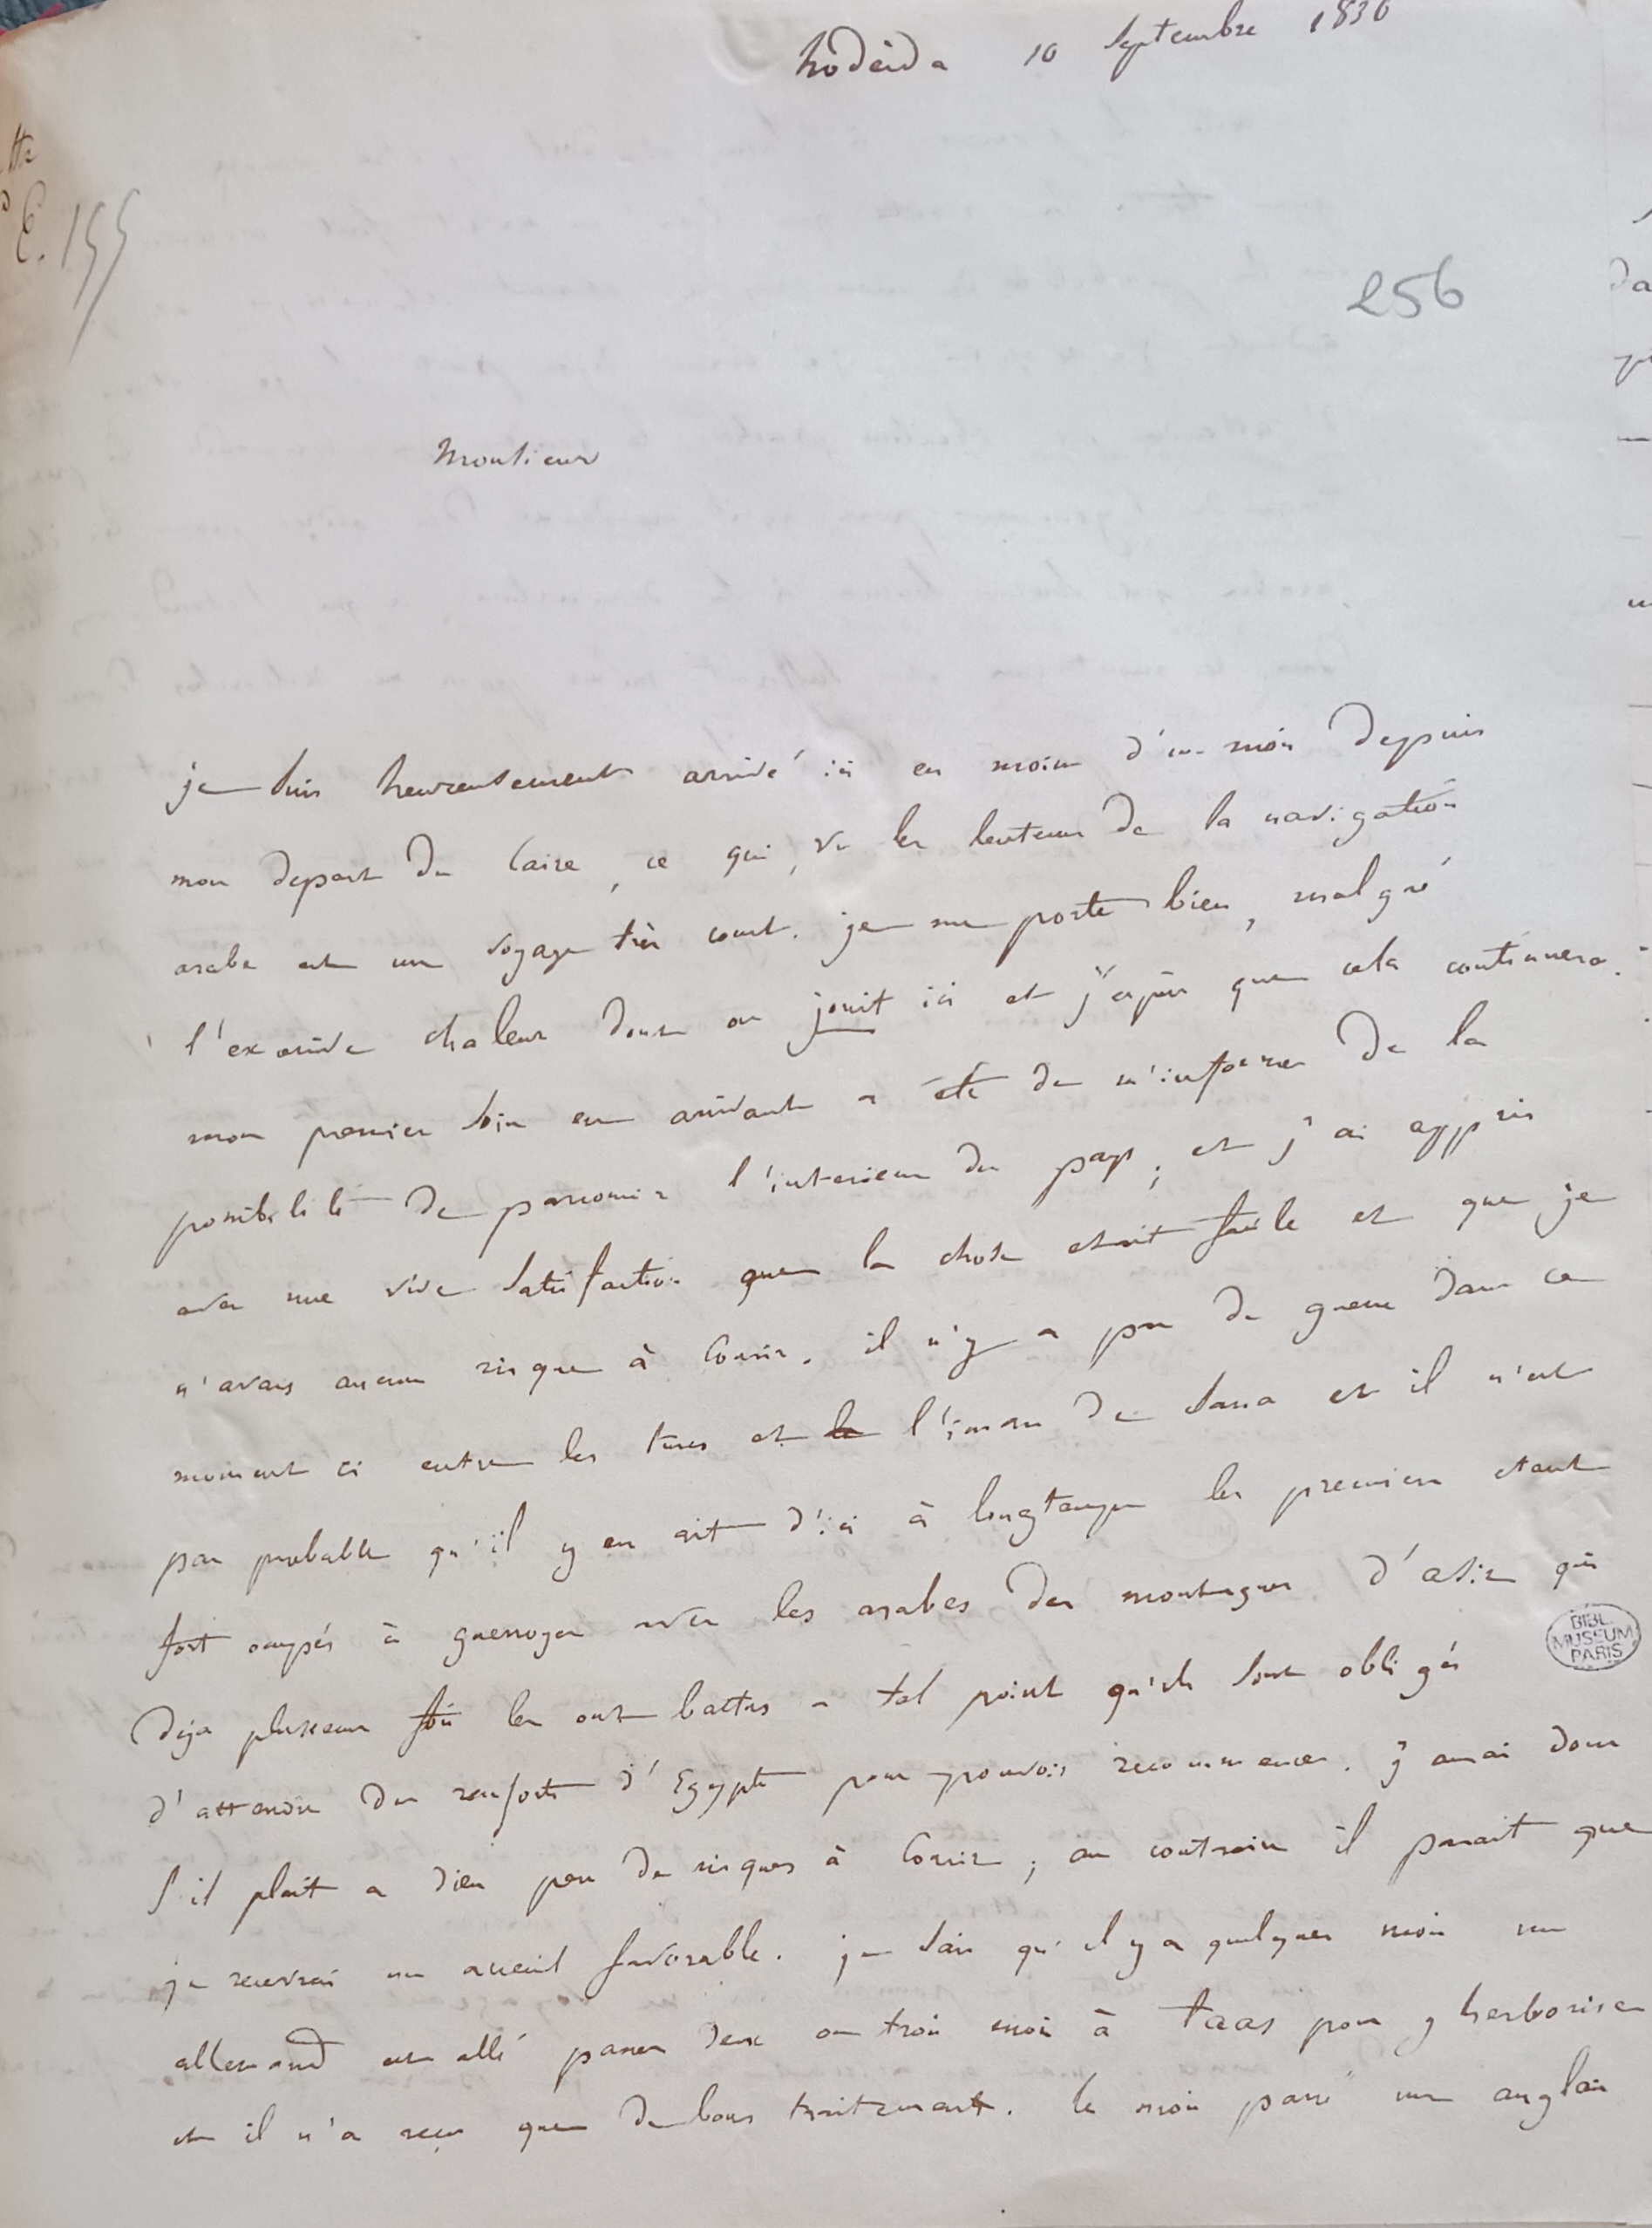 hodeida 10 Septembre 1836
tte
E. 155
256
Monsieur
je suis heureusement arrivé ici en moins d'un mois depuis
mon depart du Caire, ce qui, vu les lenteurs de la navigation
arabe est un voyage très court. je me porte bien, malgré
l'excessive chaleur dont on jouit ici et j'espère que cela continuera.
mon premier soin en arrivant a été de m'informer de la
possibilité de parcourir l'interieur du pays; et j'ai appris
avec une vive satisfaction que la chose etait facile et que je
n'avais aucun risque à Courir. il n'y a pas de guerre dans ce
moment ci entre les turcs et le l'iman de Sana et il n'est
pas probable qu'il y en ait d'ici à longtemps les premiers etant
fort occupés à guerroyer avec les arabes des montagnes d'asir qui
deja plusieurs fois les ont battus a tel point qu'ils sont obligés
d'attendre des renforts d'Egypte pour pouvoir recommencer. j'aurai donc
s'il plait a dieu peu de risques à Courir; au contraire il parait que
je recevrai un accueil favorable. je sais qu'il y a quelques mois un
allemand est allé passer deux ou trois mois à taas pour y herboriser
et il n'a reçu que de bons traitement. le mois passé un anglais
BIBL.
MUSEUM
PARIS